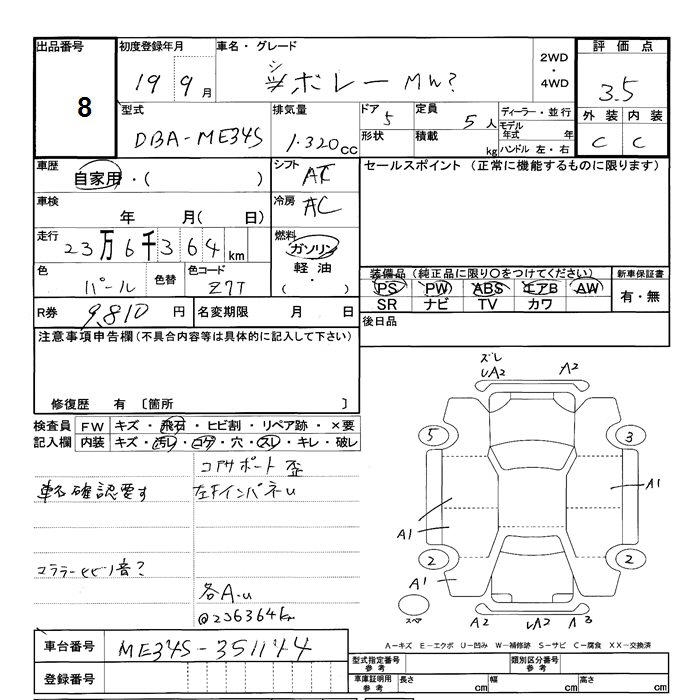 出品番号 初度登録年月 車名・グレード 2WD ・ 4WD 評価点
8 19 9 月 シボレー MW? 3.5
外装 内装
C C
型式 排気量 ドア 定員 ディーラー・並行
DBA-ME34S 1.320 cc 5 5 人 モデル年式 年
形状 積載 kg ハンドル 左・右
車歴 シフト セールスポイント (正常に機能するものに限ります)
自家用・( ) AT
車検 冷房
年 月( 日) AC
走行 燃料
23万6千364 km ガソリン
軽油・( )
色 色替 色コード
パール Z7T
装備品 (純正品に限り○をつけてください) 新車保証書
PS PW ABS エアB AW 有・無
SR ナビ TV カワ
R券 9,810 円 名変期限 月 日 後日品
注意事項申告欄(不具合内容等は具体的に記入して下さい)
修復歴 有 〔箇所 〕
検査員 FW キズ・飛石・ヒビ割・リペア跡・×要
記入欄 内装 キズ・汚レ・コゲ・穴・スレ・キレ・破レ
コアサポート歪
確認要す 左Fインパネu
音?
各A.u
@236364km
車台番号 ME34S-351144
登録番号
ズレ
UA2 A2
5 3
A1 A1
2 2
A1
スペア A2 UA2 A3
A-キズ E-エクボ U-凹み W-補修跡 S-サビ C-腐食 XX-交換済
型式指定番号 参考 類別区分番号 参考
車庫証明用 参考 長さ cm 幅 cm 高さ cm